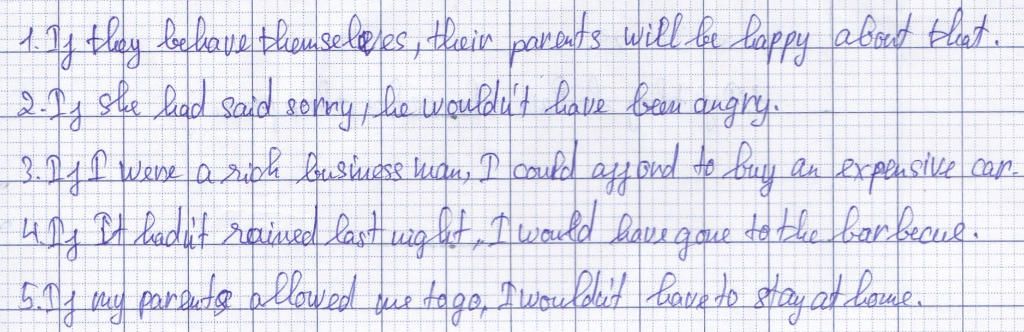 1. If they behave themselves, their parents will be happy about that.
2. If she had said sorry, he wouldn't have been angry.
3. If I were a rich business man, I could afford to buy an expensive car.
4. If It hadn't rained last night, I would have gone to the barbecue.
5. If my parents allowed me to go, I wouldn't have to stay at home.